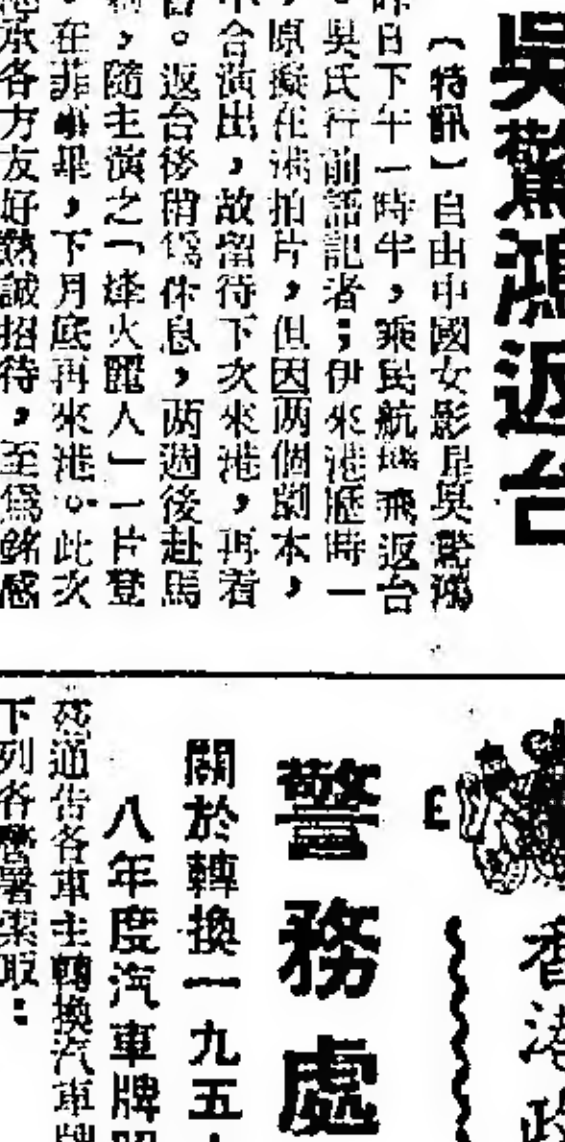 吳驚鴻返台
(特訊)自由中國女影星吳驚鴻
昨日下午一時半,乘民航機飛返台
。吳氏行前語記者;伊來港歷時一
,原擬在港拍片,但因两個劇本,
不合演出,故留待下次來港,再着
。返台後稍爲休息,两週後赴馬
,隨主演之「烽火麗人」一片登
。在菲事畢,下月底再來港。此次
承各方友好熱誠招待,至爲銘感
香港政
警務處
關於轉換一九五
八年度汽車牌照
茲通告各車主轉換汽車牌
下列各警署索取: